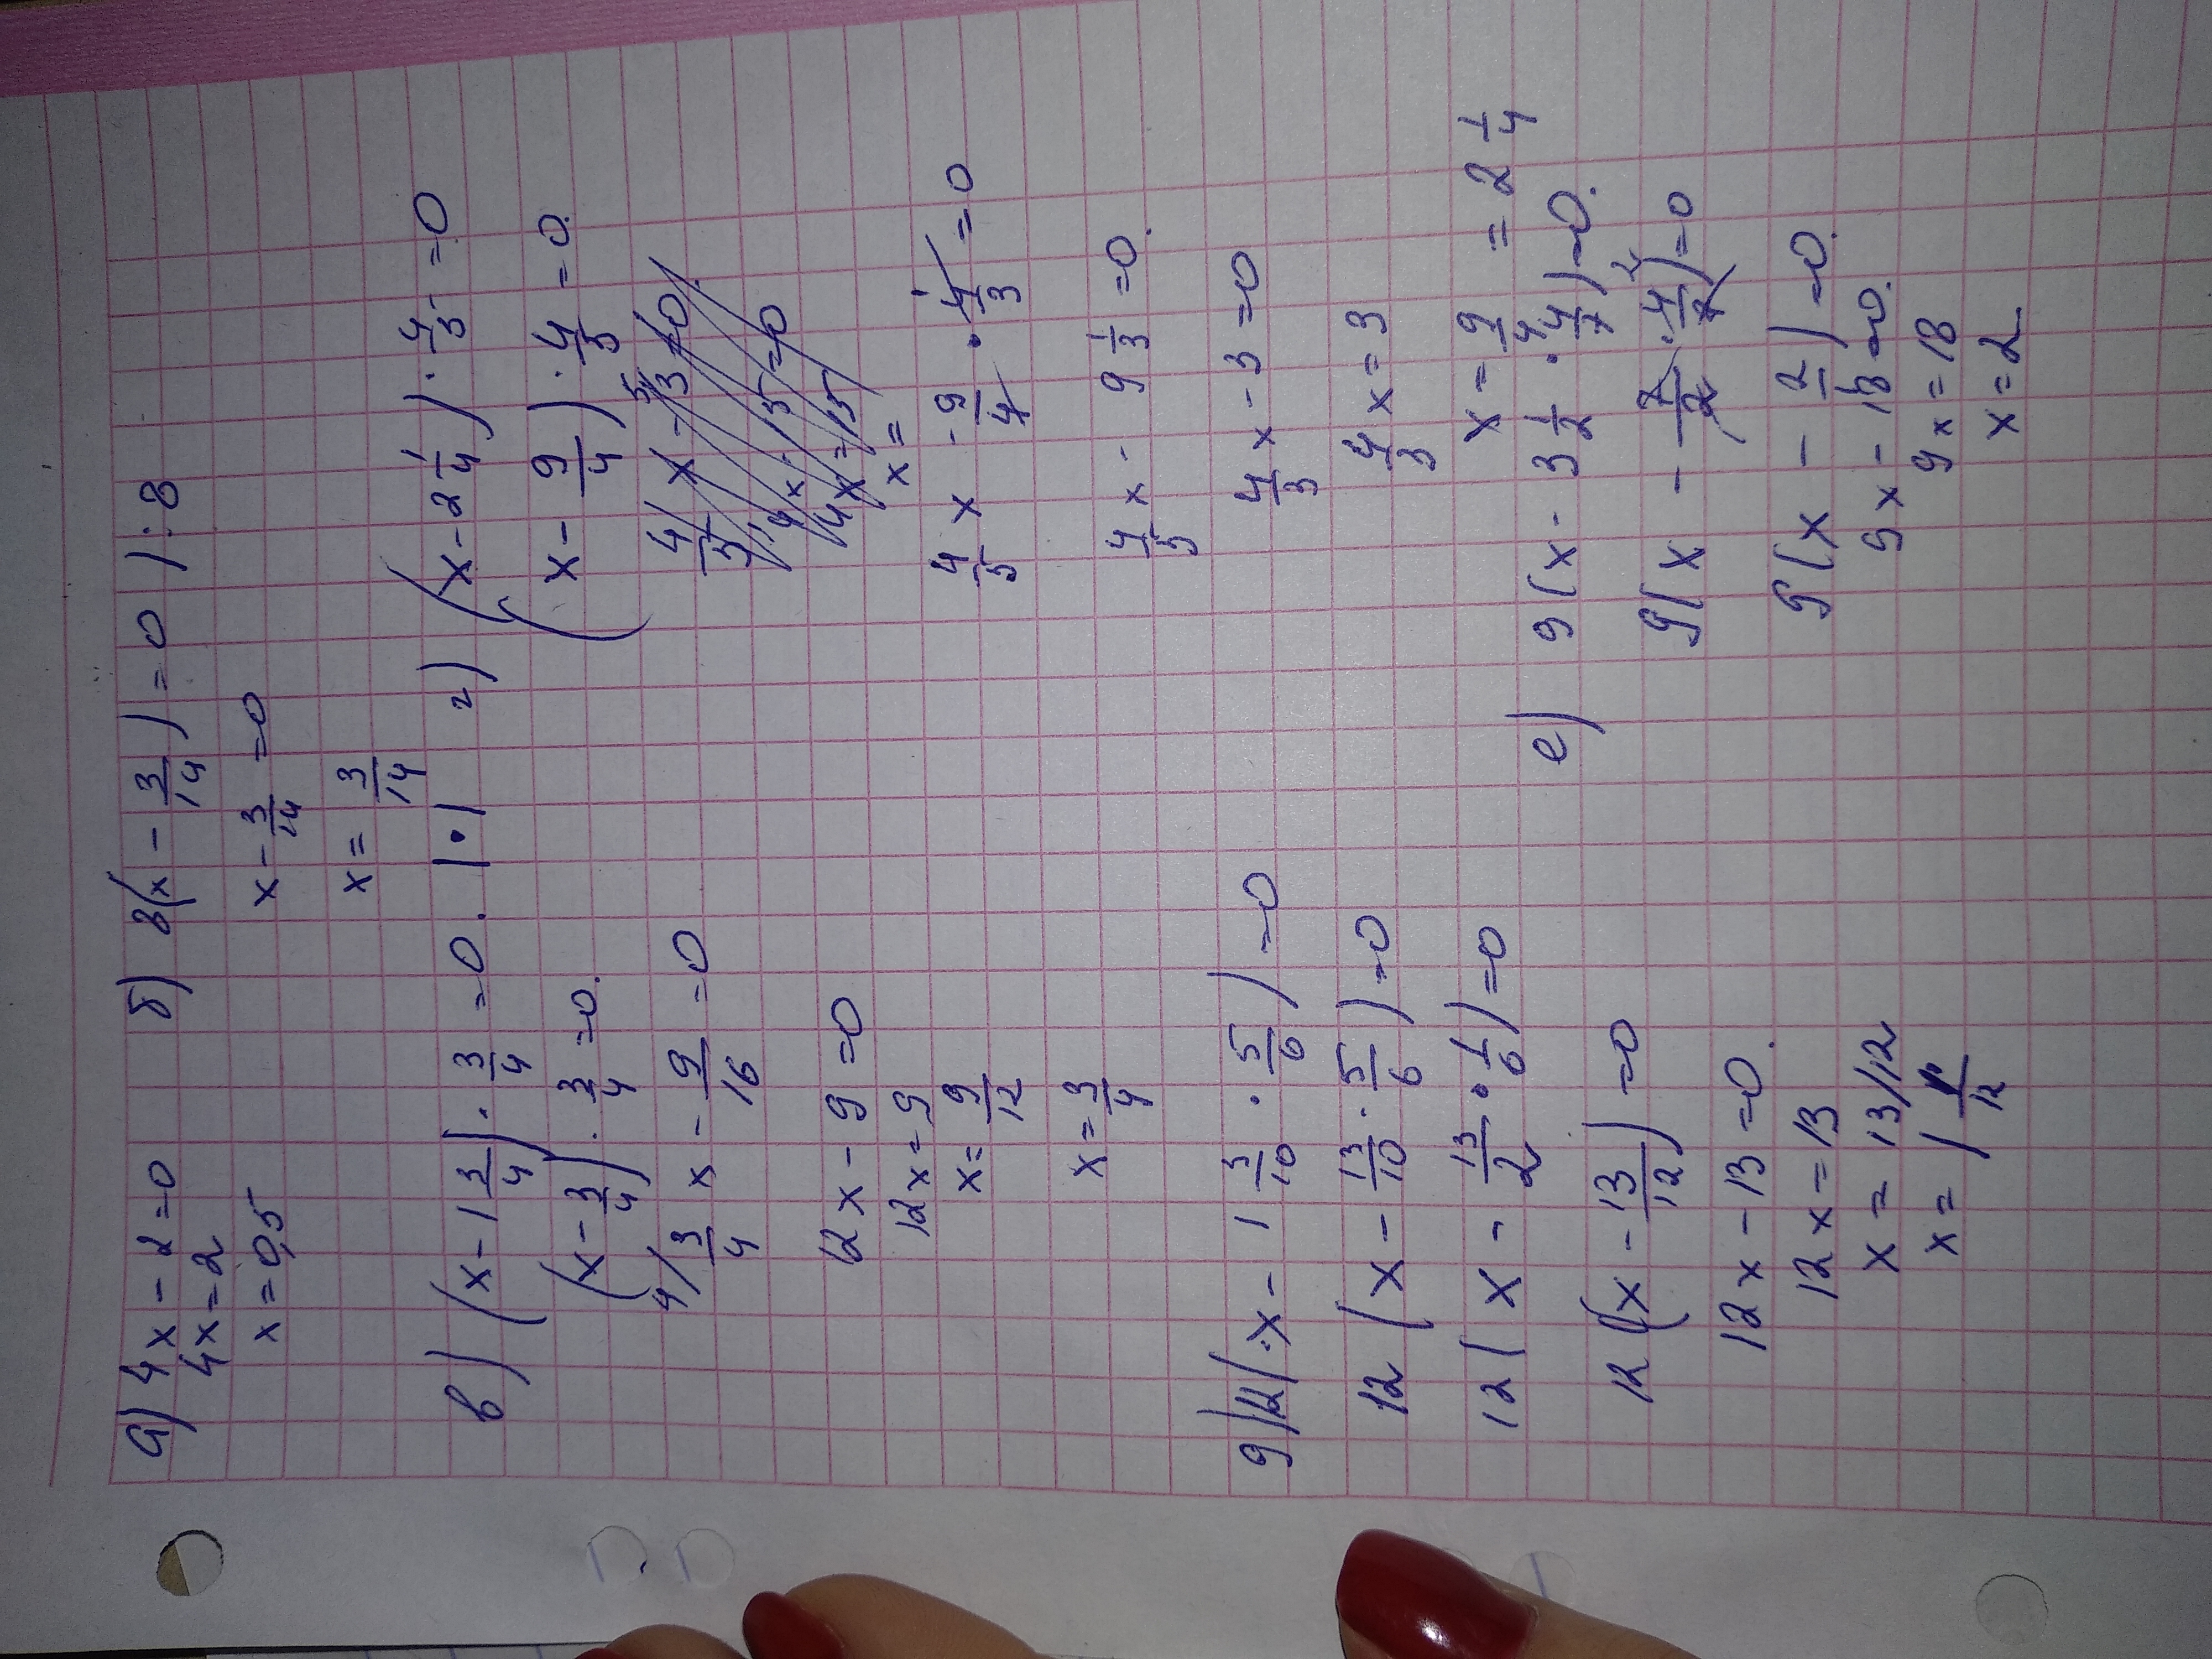 а) 4x - 2 = 0
4x = 2
x = 0,5
б) 8(x - 3/14) = 0 | : 8
x - 3/14 = 0
x = 3/14
в) (x - 1 3/4) · 3/4 = 0.
(x - 3/4) · 3/4 = 0.
4/ 3/4 x - 9/16 = 0
12x - 9 = 0
12x = 9
x = 9/12
x = 3/4
г) (x - 2 1/4) · 4/3 = 0
(x - 9/4) · 4/3 = 0.
4/3 x - 9/4 · 4/3 = 0
4/3 x - 9 1/3 = 0.
4/3 x - 3 = 0
4/3 x = 3
x = 9/4 = 2 1/4
g) 12(x - 1 3/10 · 5/6) = 0
12(x - 13/10 · 5/6) = 0
12(x - 13/2 · 1/6) = 0
12(x - 13/12) = 0
12x - 13 = 0.
12x = 13
x = 13/12
x = 1 1/12
е) 9(x - 3 1/2 · 4/7) = 0.
9(x - 7/2 · 4/7) = 0
9(x - 2/1) = 0.
9x - 18 = 0.
9x = 18
x = 2